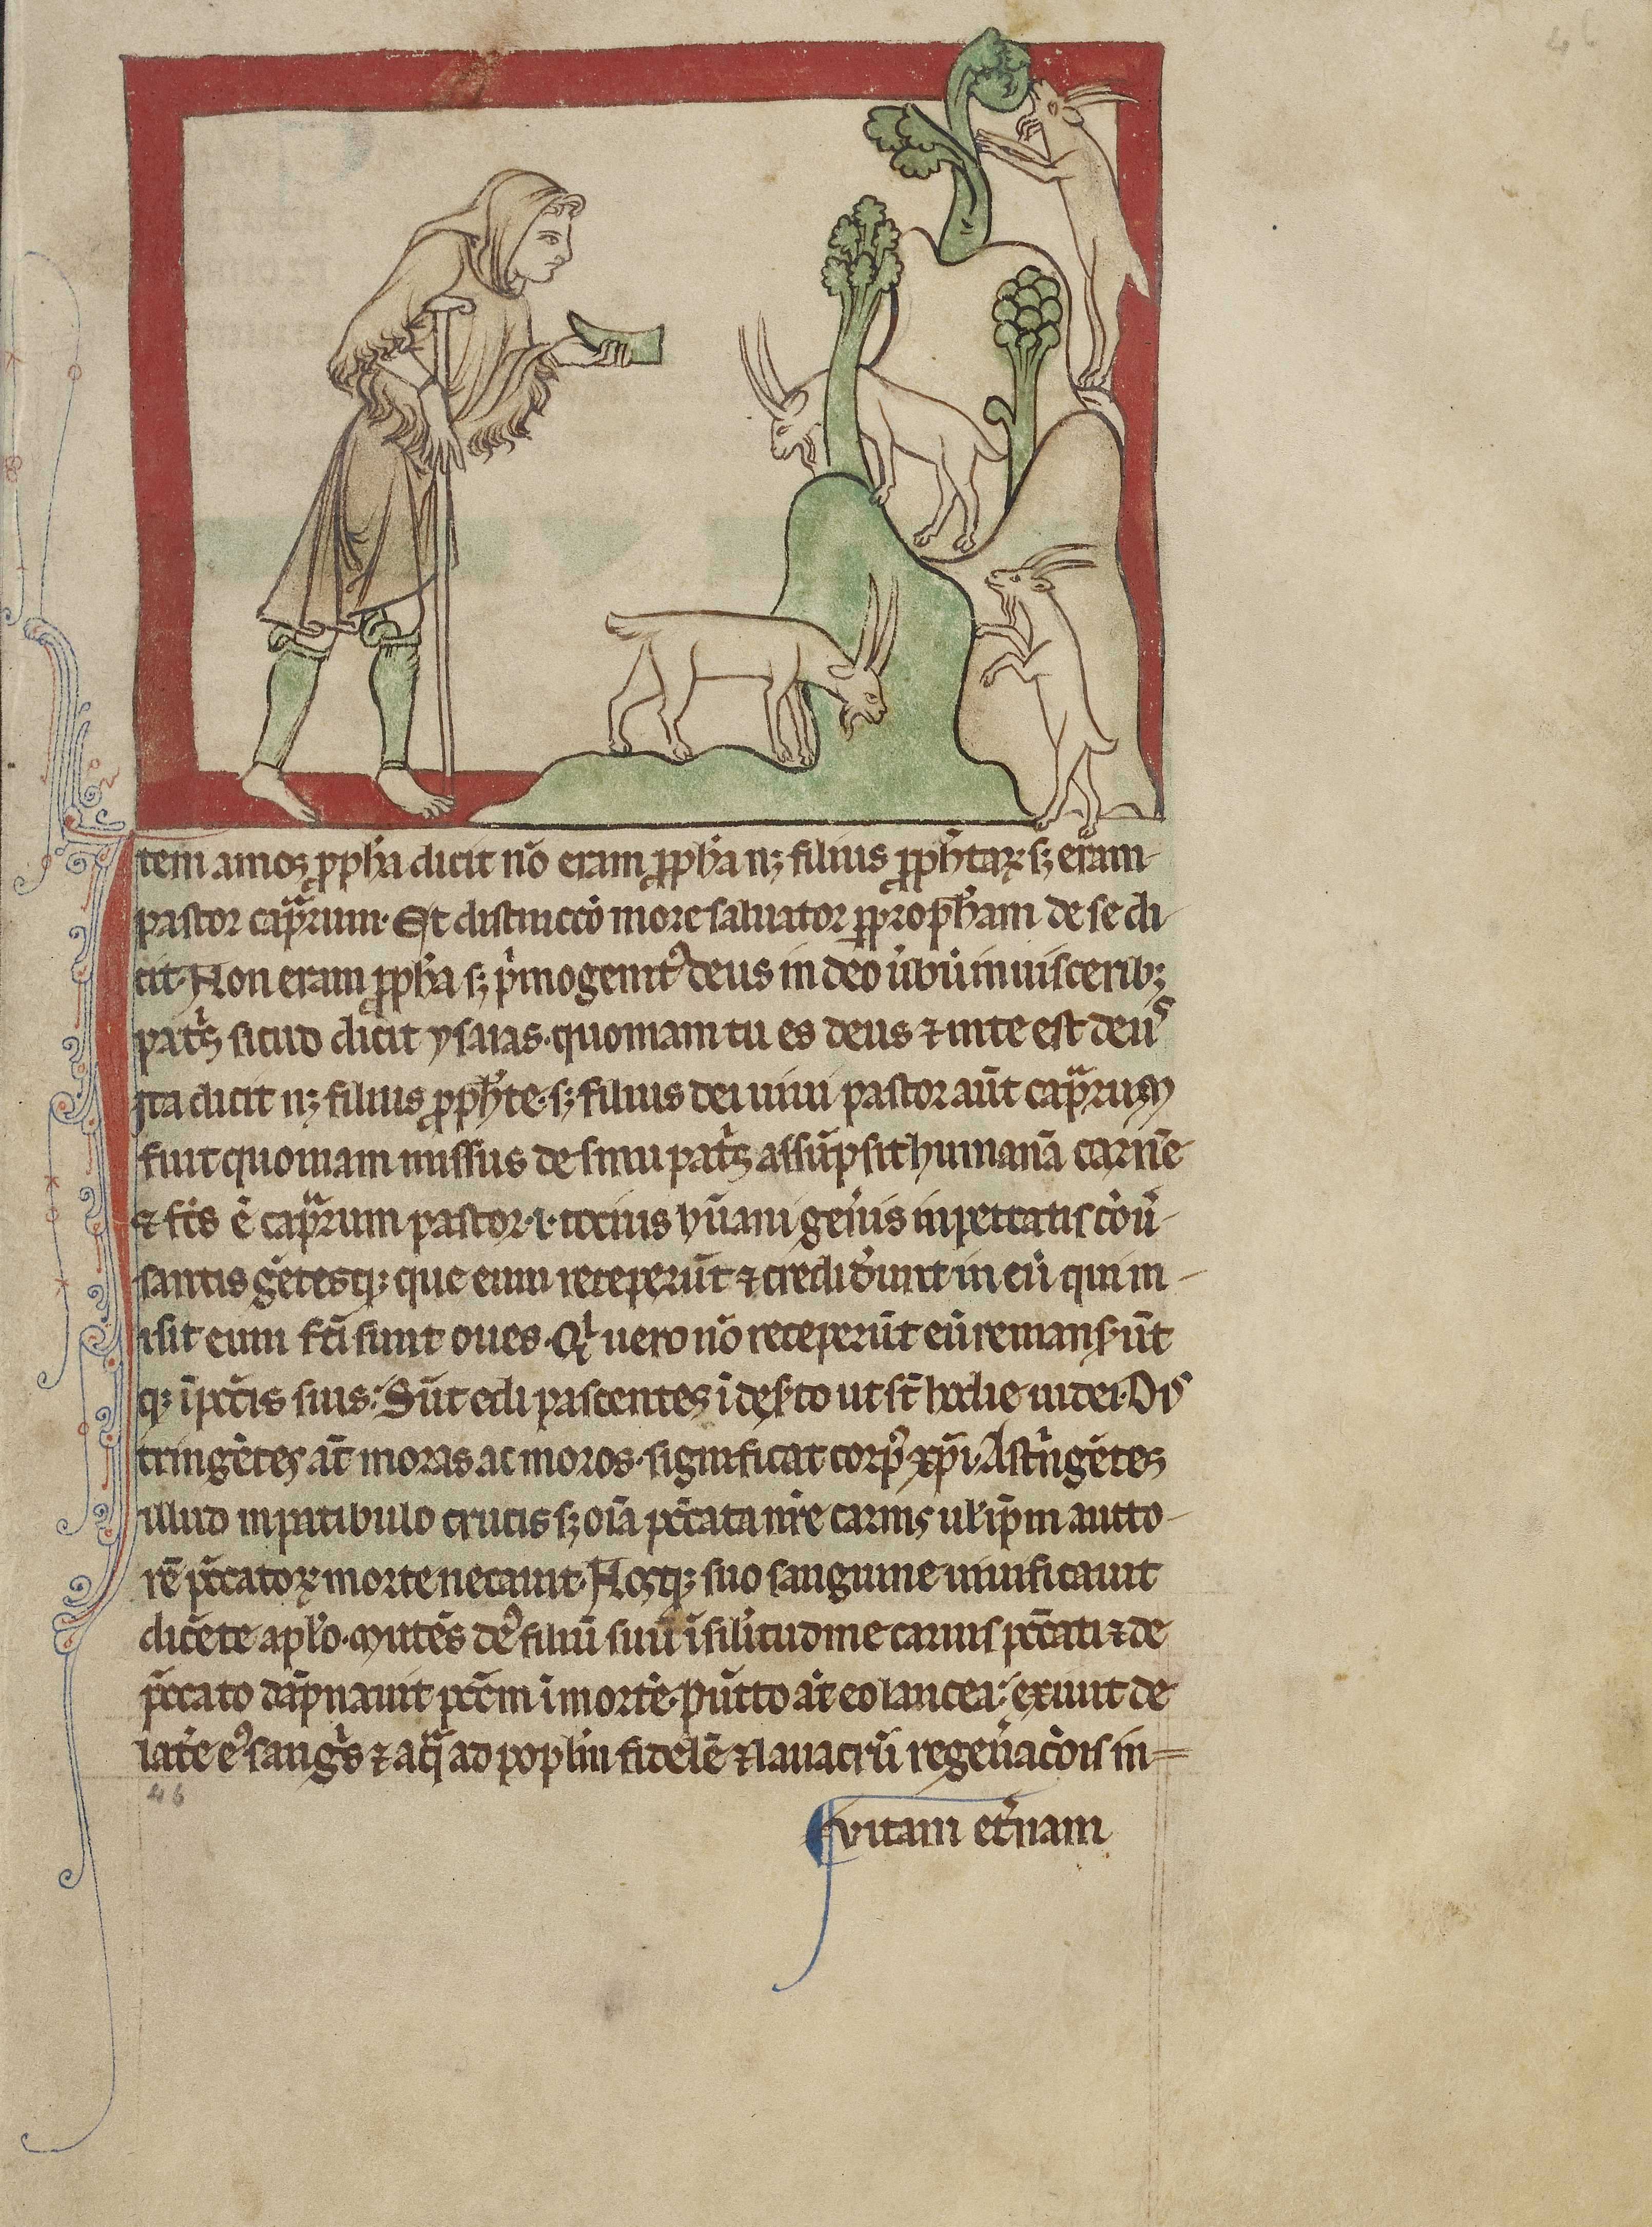 Item amos ꝓph̃a dicit nõ eram ꝓph̃a nꝫ filius ꝓph̃taꝝ· sꝫ eram
pastor cap̃rum· Et distinccõ more saluator ꝓprop̃ham de se di
cit· Non eram ꝓph̃a sꝫ p̃mogenitꝰ deus in deo ũbũ in uiscerib;
pat̃s sicud dicit ysaias· quoniam tu es deus ⁊ in te est deus
Ita dicit nꝫ filius ꝓph̃te· sꝫ filius dei uiui pastor aũt cap̃rum
fuit quoniam missus de sinu pat̃s assũpsit humanã carnẽ
⁊ fc̃s ẽ cap̃rum pastor· i· tocius hũani geñis in peccatis cõũ
santis gẽtesqꝫ que eum receperũt ⁊ credid̃unt in eũ qui m
isit eum fc̃i sunt oues· Qⁱ uero nõ receperũt eũ remans̃ũt
qꝫ ĩ pcc̃is suis· Sũt edi pascentes ĩ des̃to ut sũt hodie iudei· Dis
tringẽtes aũt moras ac moros· significat corpꝰ xp̃i· Astr̃ngẽtes
illud in patibulo crucis sꝫ oĩa pcc̃ata nr̃e carnis ul̃ ip̃m aucto
rẽ pcc̃atoꝝ morte necauit· Nosqꝫ suo sanguine uiuificauit
dicẽte ap̃lo· Mittẽs deꝰ filiũ suũ ĩ sil̃itudine carnis pcc̃ati ⁊ de
pcc̃ato dãpnauit pcc̃m ĩ morte· Pũcto aũt eo lancea· exiuit de
lat̃e eꝰ sang̃s ⁊ aq̃ ad popl̃m fidelẽ ⁊ lauacrũ regeñacõis in
46
vitam et̃nam
46